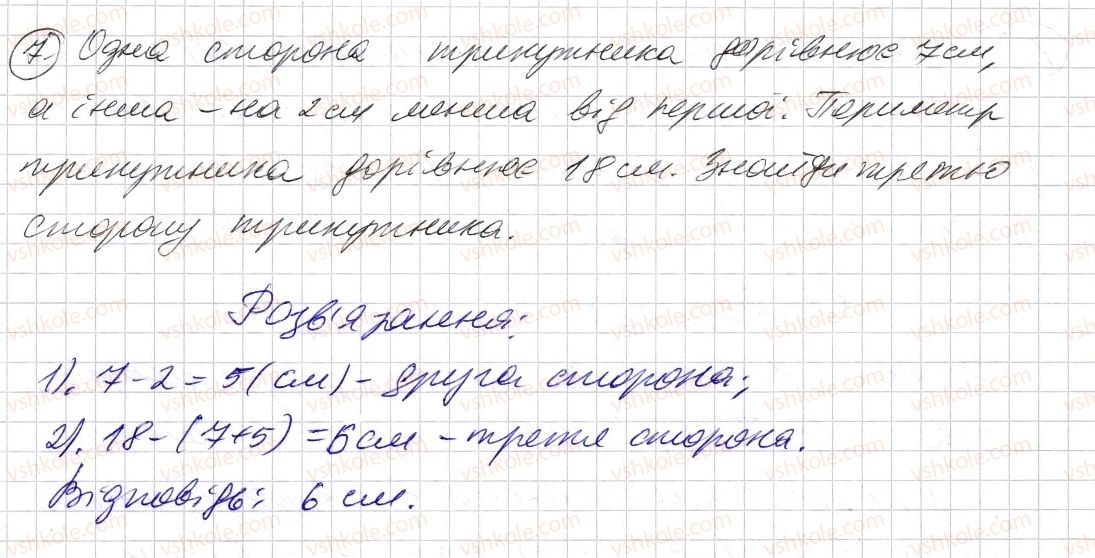 7. Одна сторона трикутника дорівнює 7 см,
а інша – на 2 см менша від першої. Периметр
трикутника дорівнює 18 см. Знайди третю
сторону трикутника.
Розв'язання:
1). 7 - 2 = 5 (см) - друга сторона;
2). 18 - (7+5) = 6 см - третя сторона.
Відповідь: 6 см.